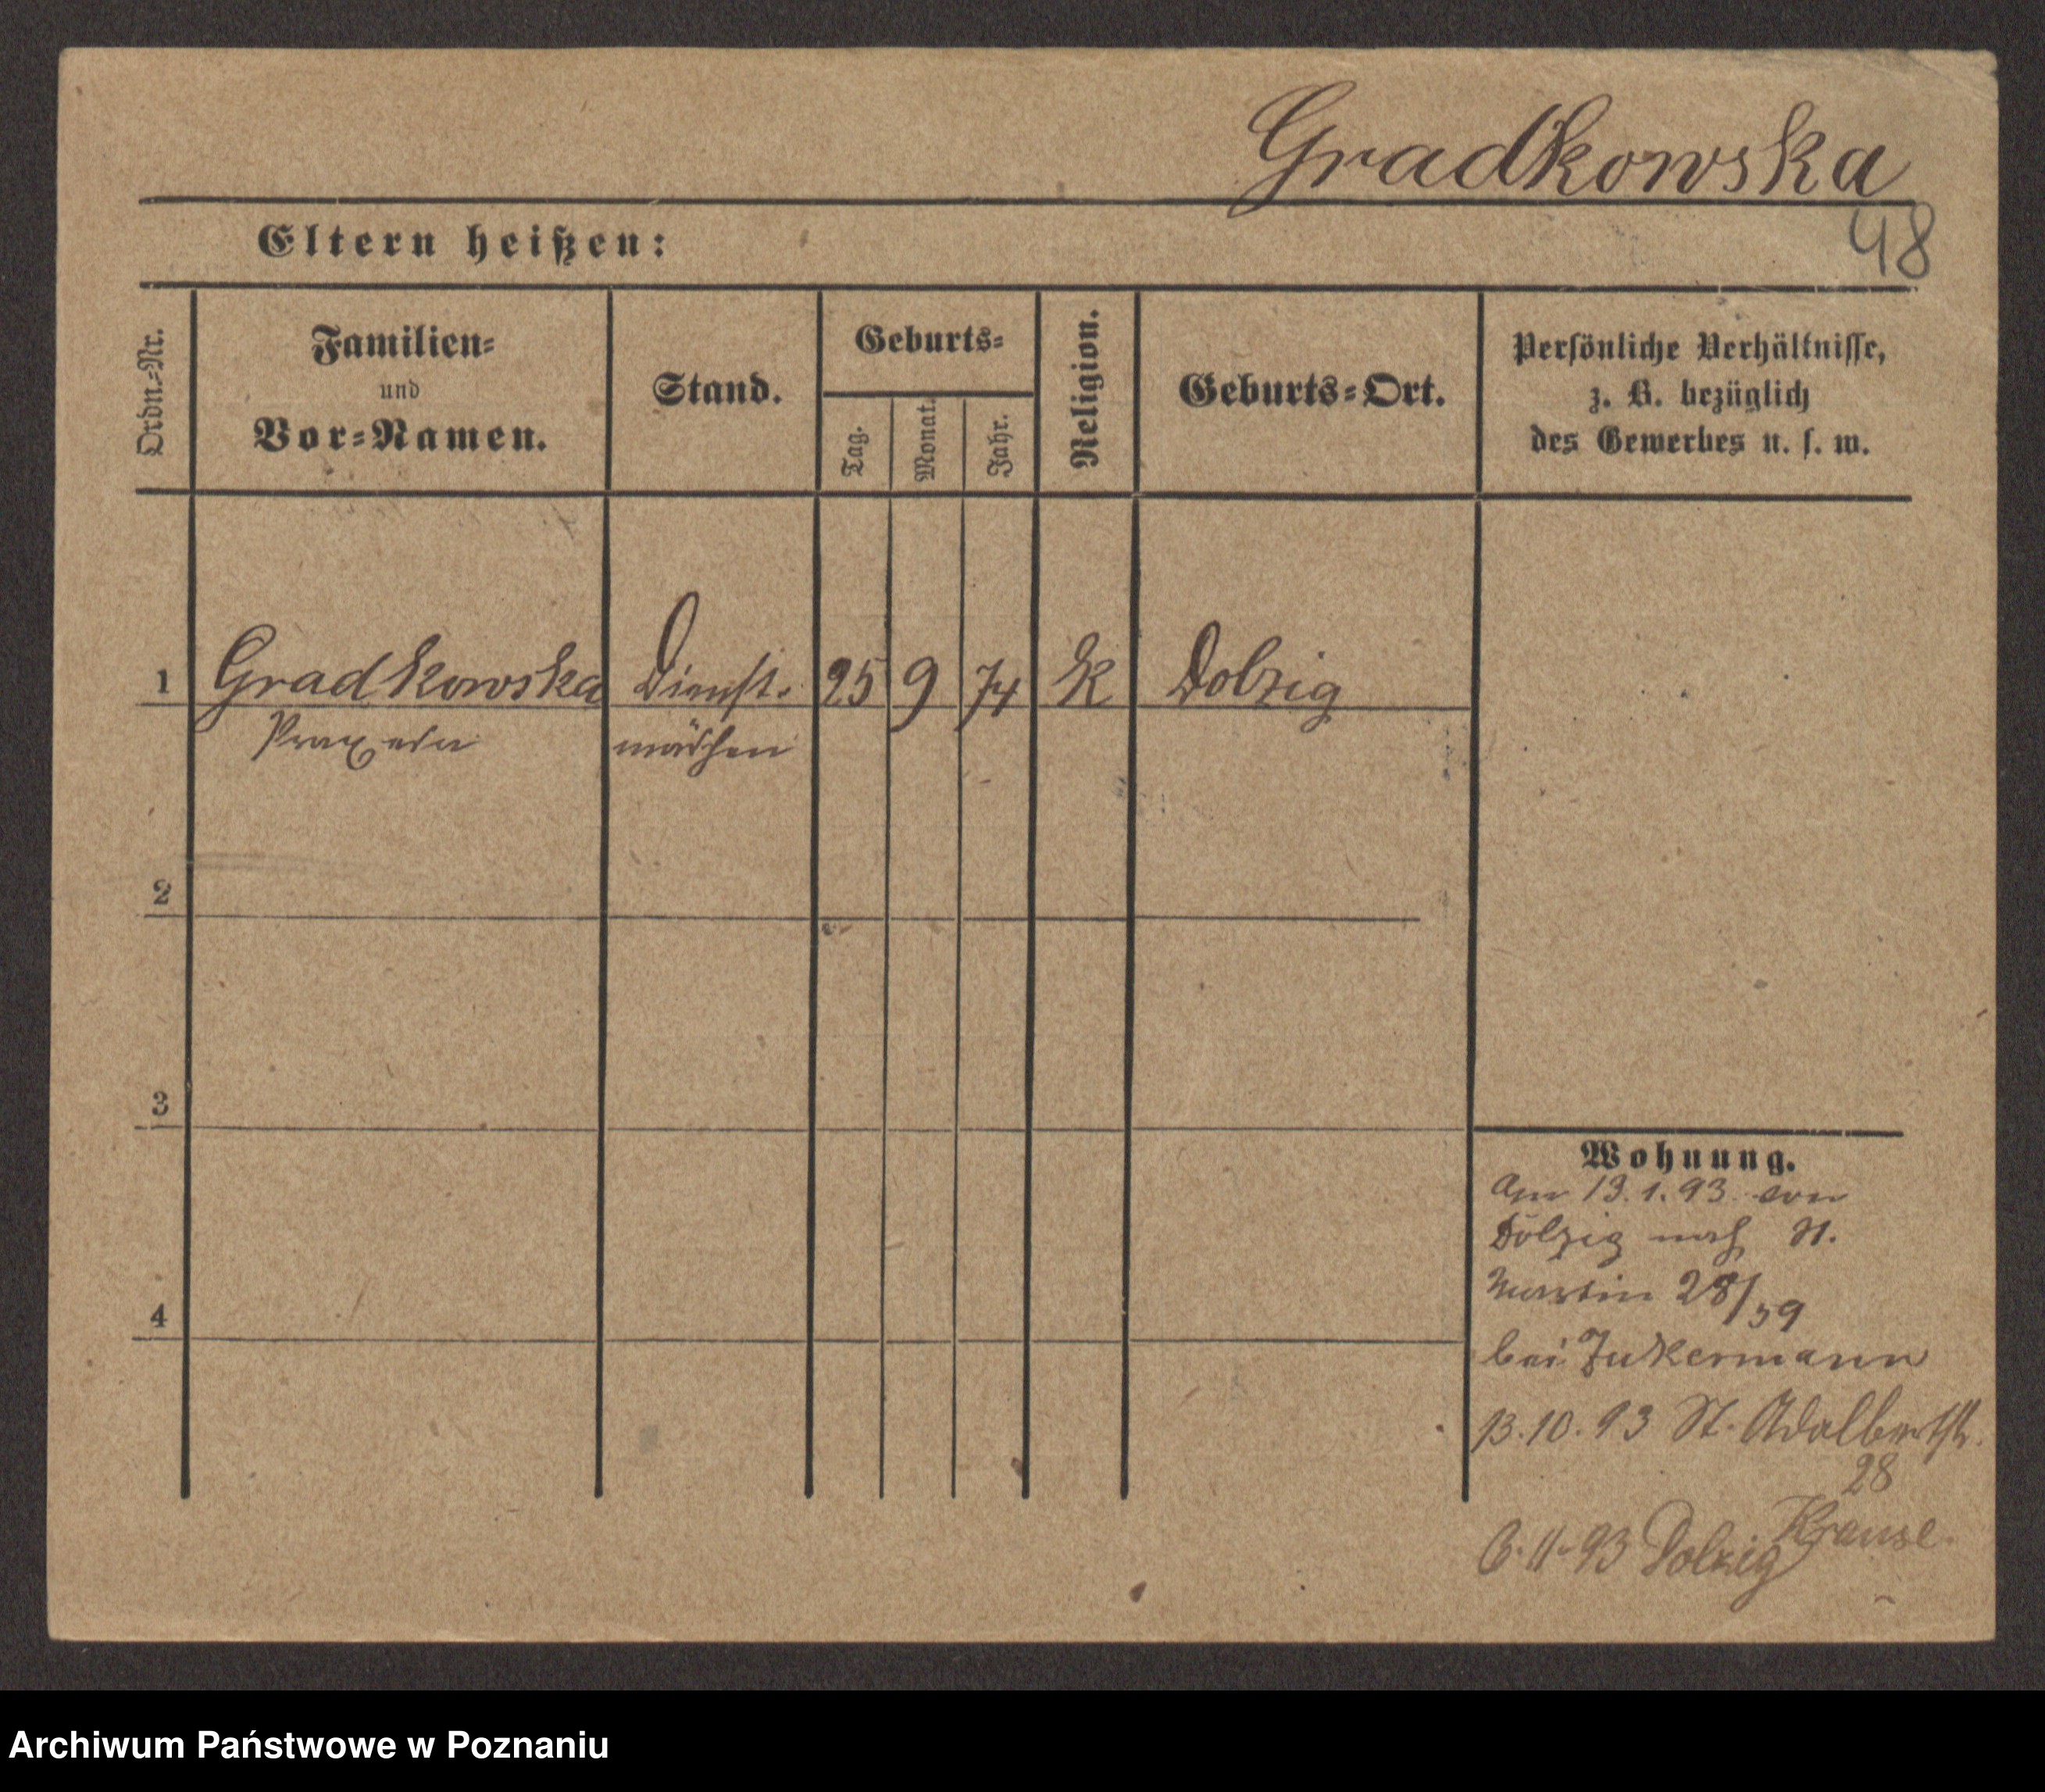 Gradkowska
48
Eltern heißen:
Ordn.-Nr.
Familien-
und
Vor-Namen.
Stand.
Geburts-
Tag.
Monat.
Jahr.
Religion.
Geburts-Ort.
Persönliche Verhältnisse,
z. B. bezüglich
des Gewerbes u. s. w.
1 Gradkowska Dienst- 25 9 74 K Dolzig
Praxeda mädchen
2
3
4
Wohnung.
Am 13.1.93 von
Dolzig nach St.
Martin 28/39
bei Zukermann
13.10.93 St. Adalbertstr.
28
Krause
6.11.93 Dolzig
Archiwum Państwowe w Poznaniu